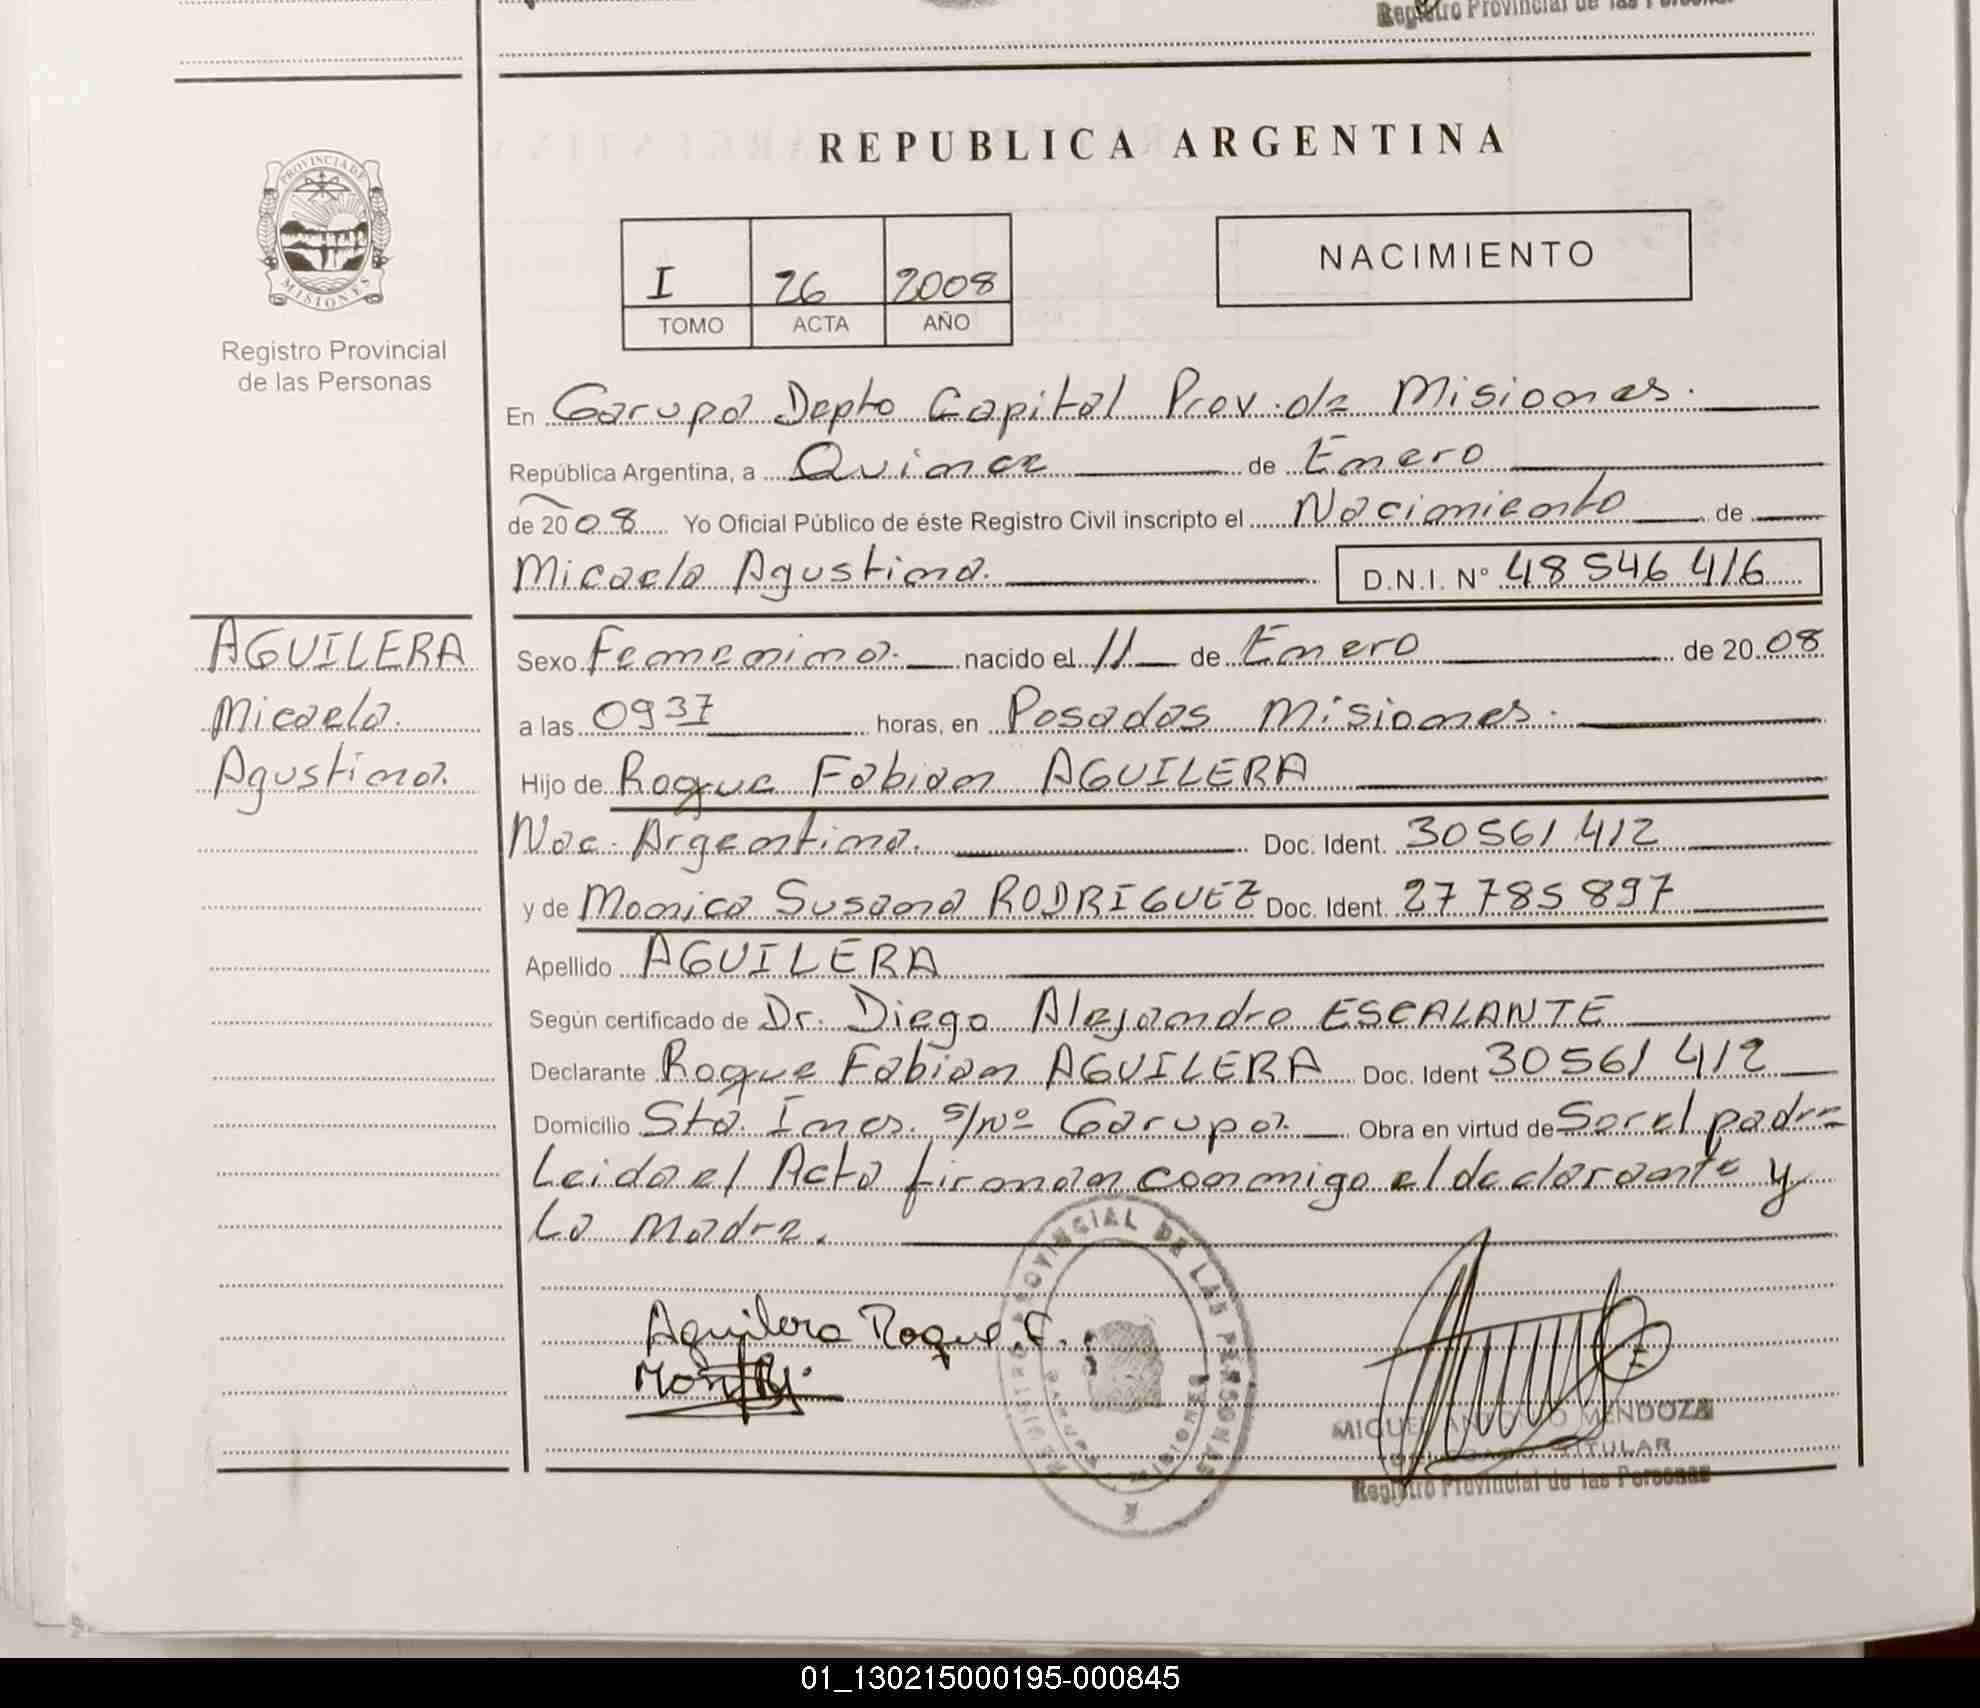 Registro Provincial de las Personas
REPUBLICA ARGENTINA
PROVINCIA DE
MISIONES
Registro Provincial
de las Personas
I 26 2008
TOMO ACTA AÑO
NACIMIENTO
En Garupa Depto Capital Prov. de Misiones.
República Argentina, a Quince de Enero
de 2008 Yo Oficial Público de éste Registro Civil inscripto el Nacimiento de
Micaela Agustina. D.N.I. N° 48 546 416
AGUILERA
Micaela.
Agustina.
Sexo Femenino. nacido el 11 de Enero de 2008
a las 0937 horas, en Posadas Misiones.
Hijo de Roque Fabian AGUILERA
Nac. Argentina. Doc. Ident. 30 561 412
y de Monica Susana RODRIGUEZ Doc. Ident. 27 785 897
Apellido AGUILERA
Según certificado de Dr. Diego Alejandro ESCALANTE
Declarante Roque Fabian AGUILERA Doc. Ident 30 561 412
Domicilio Sta. Ines. s/nº Garupa. Obra en virtud de Ser el padre
Leida el Acta firman conmigo el declarante y
La madre.
REGISTRO PROVINCIAL DE LAS PERSONAS
GARUPA MISIONES
Aguilera Roque F.
MIGUEL ANTONIO MENDOZA
DELEGADO TITULAR
Registro Provincial de las Personas
01_130215000195-000845